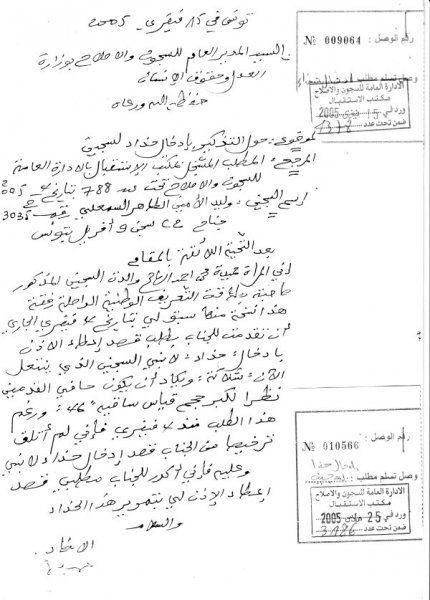 تونس في 15 فيفري 2005
السيد المدير العام للسجون والاصلاح بوزارة
العدل وحقوق الانسان
حفظه الله ورعاه
الموضوع: حول التذكير بإدخال حذاء لسجين
المرجع: المطلب المسجل بمكتب الاستقبال بالادارة العامة
للسجون والاصلاح تحت عدد 788 بتاريخ
إسم السجين: وليد الأمين الطاهر رقم 3035
جناح سجن 9 أفريل بتونس
بعد التحية اللائقة بالمقام
إني المرأة والدة السجين المذكور
صاحبة بطاقة التعريف الوطنية
سبق لي بتاريخ فيفري الجاري
أن تقدمت للجناب بطلب قصد إعطاء الاذن
بإدخال حذاء لابني السجين الذي ينتعل
الآن شلاكة ويكاد أن يكون حافي القدمين
نظرا لكبر حجم قياس ساقيه "46" ورغم
هذا الطلب منذ فيفري فإني لم أتلق
ترخيصا من الجناب قصد إدخال حذاء لابني
وعليه فإني أكرر للجناب مطلبي قصد
إعطاء الإذن لي بتمرير هذا الحذاء
والسلام
الامضاء
رقم الوصل: № 009064
وصل تسلم مطلب
الادارة العامة للسجون والإصلاح
مكتب الاستقبال
ورد في 15 فيفري 2005
ضمن تحت عدد 1318
رقم الوصل: № 010566
وصل تسلم مطلب:
الادارة العامة للسجون والإصلاح
مكتب الاستقبال
ورد في 25 2005
ضمن تحت عدد 3186